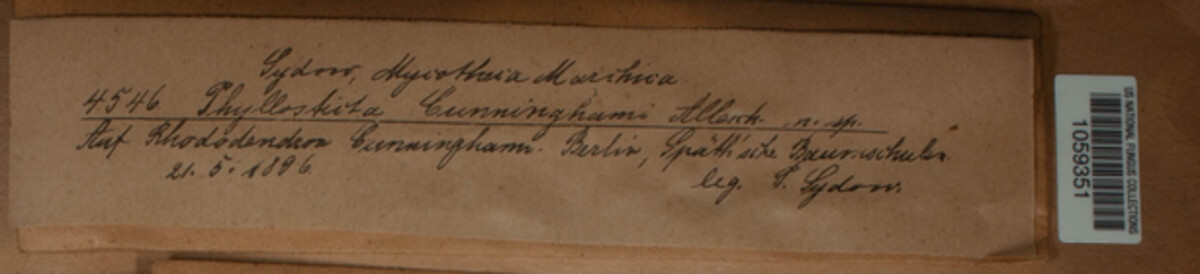 Sydow, Mycotheca Marchica
4546. Phyllosticta Cunninghami Allesch. n. sp.
Auf Rhododendron Cunninghami. Berlin, Späth'sche Baumschulen.
21. 5. 1896.
leg. P. Sydow.
US NATIONAL FUNGUS COLLECTIONS
1059351